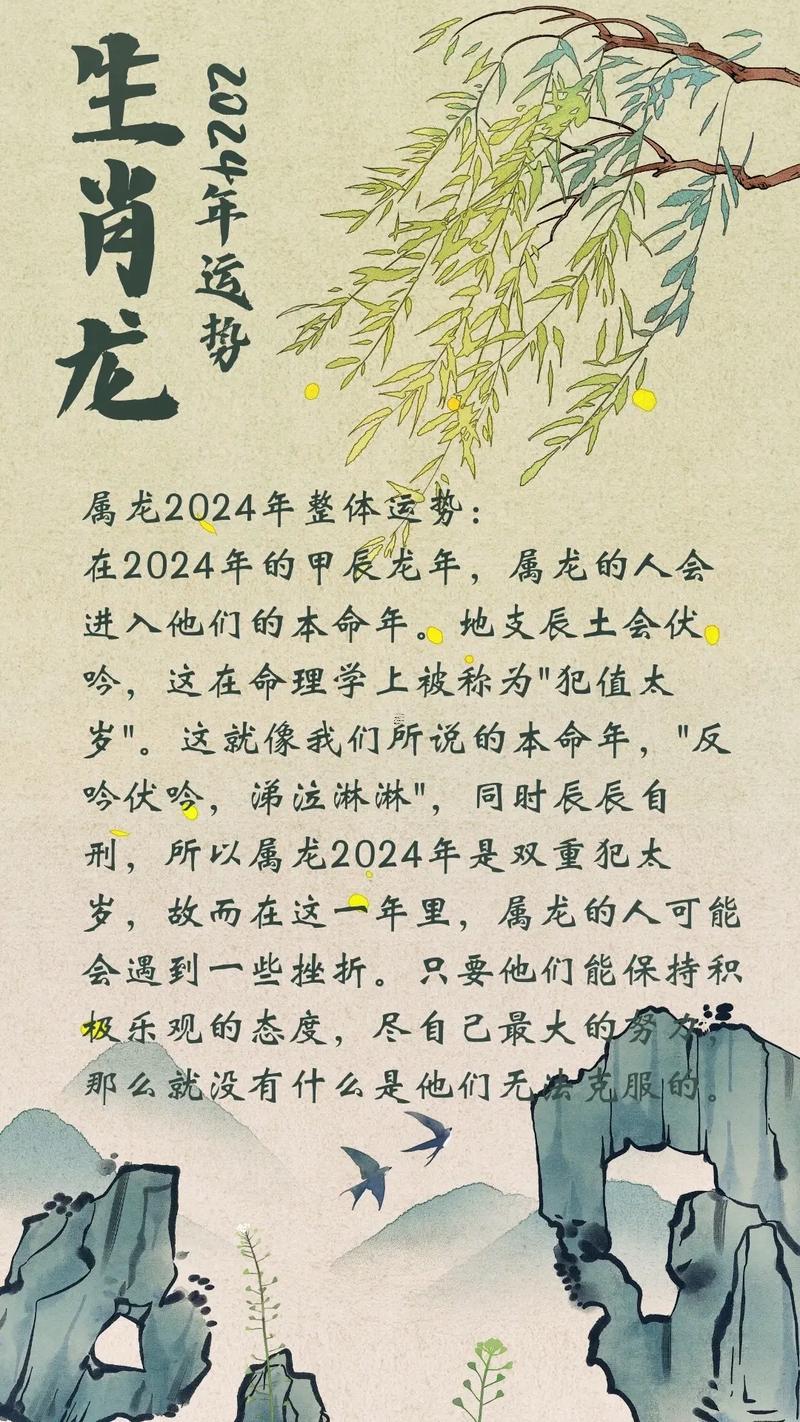 生肖龙
2024年运势
属龙2024年整体运势:
在2024年的甲辰龙年，属龙的人会
进入他们的本命年。地支辰土会伏
吟，这在命理学上被称为"犯值太
岁"。这就像我们所说的本命年，"反
吟伏吟，涕泣淋淋"，同时辰辰自
刑，所以属龙2024年是双重犯太
岁，故而在这一年里，属龙的人可能
会遇到一些挫折。只要他们能保持积
极乐观的态度，尽自己最大的努力，
那么就没有什么是他们无法克服的。